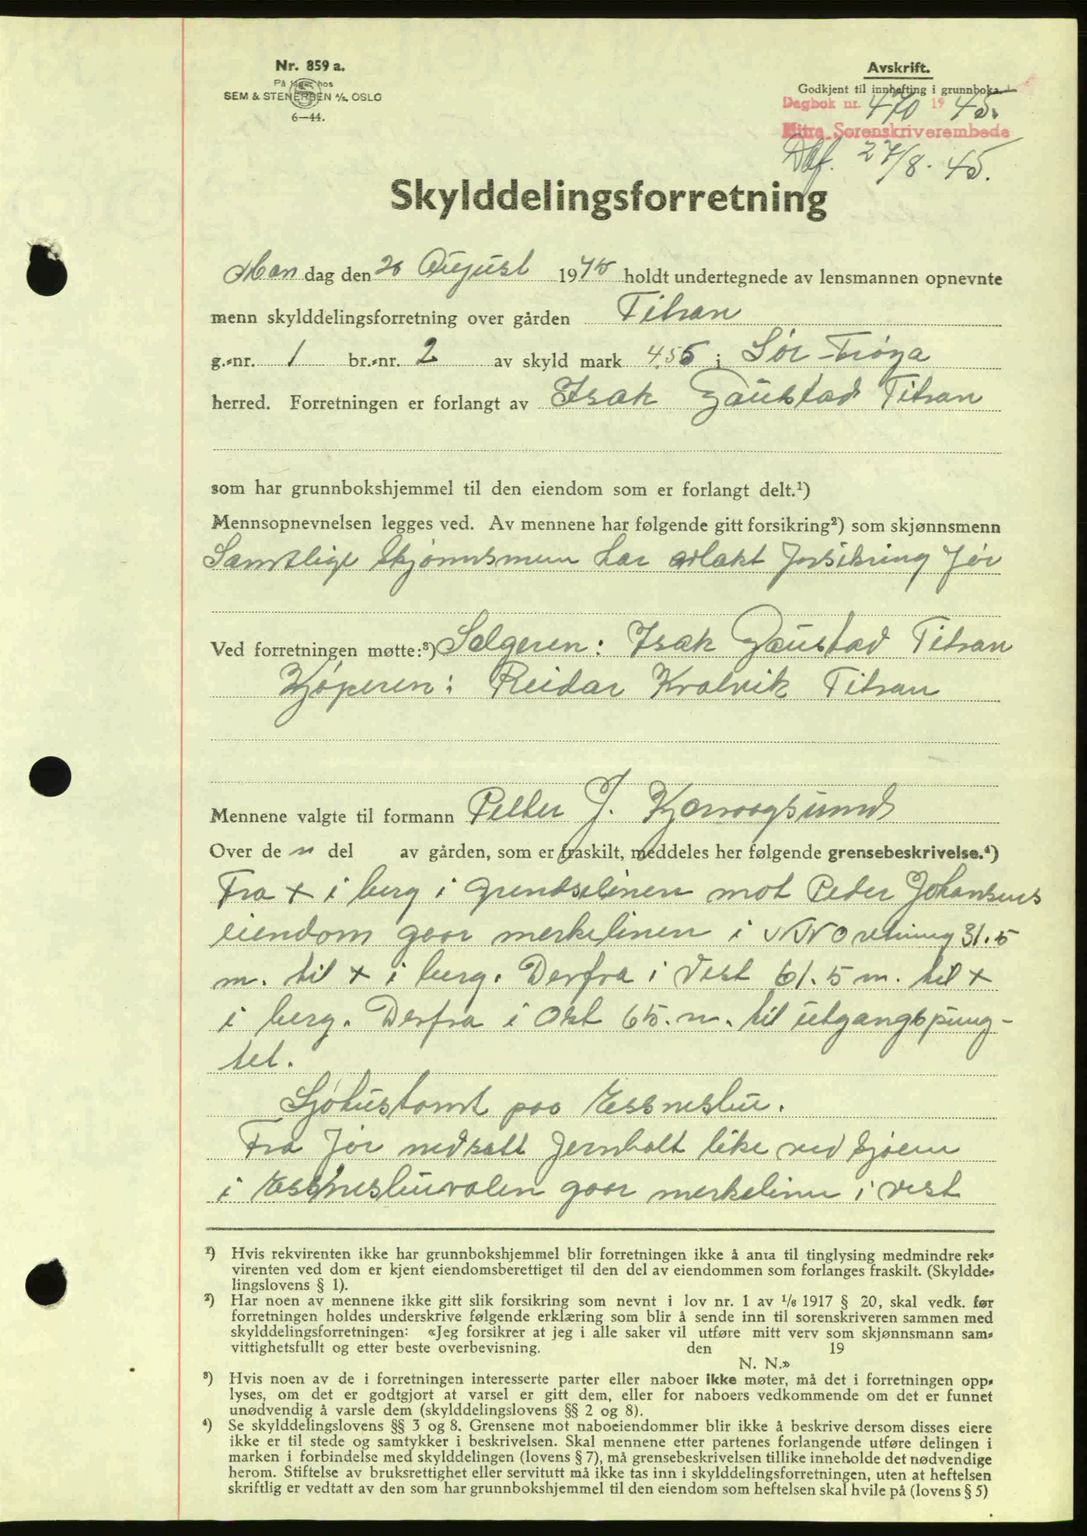 Nr. 859 a.
På lager hos
SEM & STENERSEN A/S. OSLO
6—44.
Avskrift.
Godkjent til innhefting i grunnboka.
Dagbok nr. 470 1945.
Hitra Sorenskriverembede
27/8. 45.
Skylddelingsforretning
Man dag den 20 August 1945 holdt undertegnede av lensmannen opnevnte
menn skylddelingsforretning over gården Titran
g.-nr. 1 br.-nr. 2 av skyld mark 4.56 i Sør-Frøya
herred. Forretningen er forlangt av Isak Gaustad Titran
som har grunnbokshjemmel til den eiendom som er forlangt delt.¹)
Mennsopnevnelsen legges ved. Av mennene har følgende gitt forsikring²) som skjønnsmenn
Samtlige skjønnsmenn har avlakt forsikring før
Ved forretningen møtte:³) Selgeren: Isak Gaustad Titran
Kjøperen: Reidar Kralvik Titran
Mennene valgte til formann Petter J. Kjerraagsund
Over de n del av gården, som er fraskilt, meddeles her følgende grensebeskrivelse.⁴)
Fra + i berg i grendselinen mot Peder Johansens
eiendom gaar merkelinen i NNO retning 31.5
m. til + i berg. Derfra i Vest 61.5 m. til +
i berg. Derfra i Ost 65. m. til utgangspung-
tet.
Sjøhustomt paa Essneslu.
Fra før nedsatt Jernbolt like ved sjøen
i Essnesluvalen gaar merkelinn i vest
¹) Hvis rekvirenten ikke har grunnbokshjemmel blir forretningen ikke å anta til tinglysing medmindre rek-
virenten ved dom er kjent eiendomsberettiget til den del av eiendommen som forlanges fraskilt. (Skyldde-
lingslovens § 1).
²) Har noen av mennene ikke gitt slik forsikring som nevnt i lov nr. 1 av 1/6 1917 § 20, skal vedk. før
forretningen holdes underskrive følgende erklæring som blir å sende inn til sorenskriveren sammen med
skylddelingsforretningen: «Jeg forsikrer at jeg i alle saker vil utføre mitt verv som skjønnsmann sam-
vittighetsfullt og etter beste overbevisning. den 19
N. N.»
³) Hvis noen av de i forretningen interesserte parter eller naboer ikke møter, må det i forretningen opp-
lyses, om det er godtgjort at varsel er gitt dem, eller for naboers vedkommende om det er funnet
unødvendig å varsle dem (skylddelingslovens §§ 2 og 8).
⁴) Se skylddelingslovens §§ 3 og 8. Grensene mot naboeiendommer blir ikke å beskrive dersom disses eiere
ikke er til stede og samtykker i beskrivelsen. Skal mennene etter partenes forlangende utføre delingen i
marken i forbindelse med skylddelingen (lovens § 7), må grensebeskrivelsen tillike inneholde det nødvendige
herom. Stiftelse av bruksrettighet eller servitutt må ikke tas inn i skylddelingsforretningen, uten at heftelsen
skriftlig er vedtatt av den som har grunnbokshjemmel til den eiendom som heftelsen skal hvile på (lovens § 5)